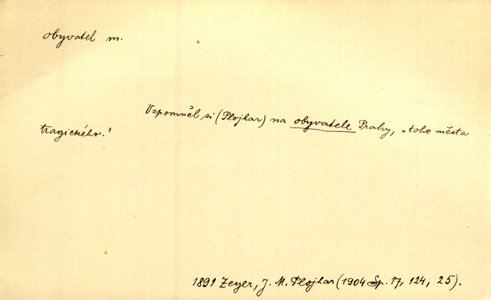 obyvatel m.
Vzpomněl si (Plojhar) na obyvatele Prahy, „toho města
tragického!
1891 Zeyer, J. M. Plojhar (1904 Sp. 17, 124, 25).